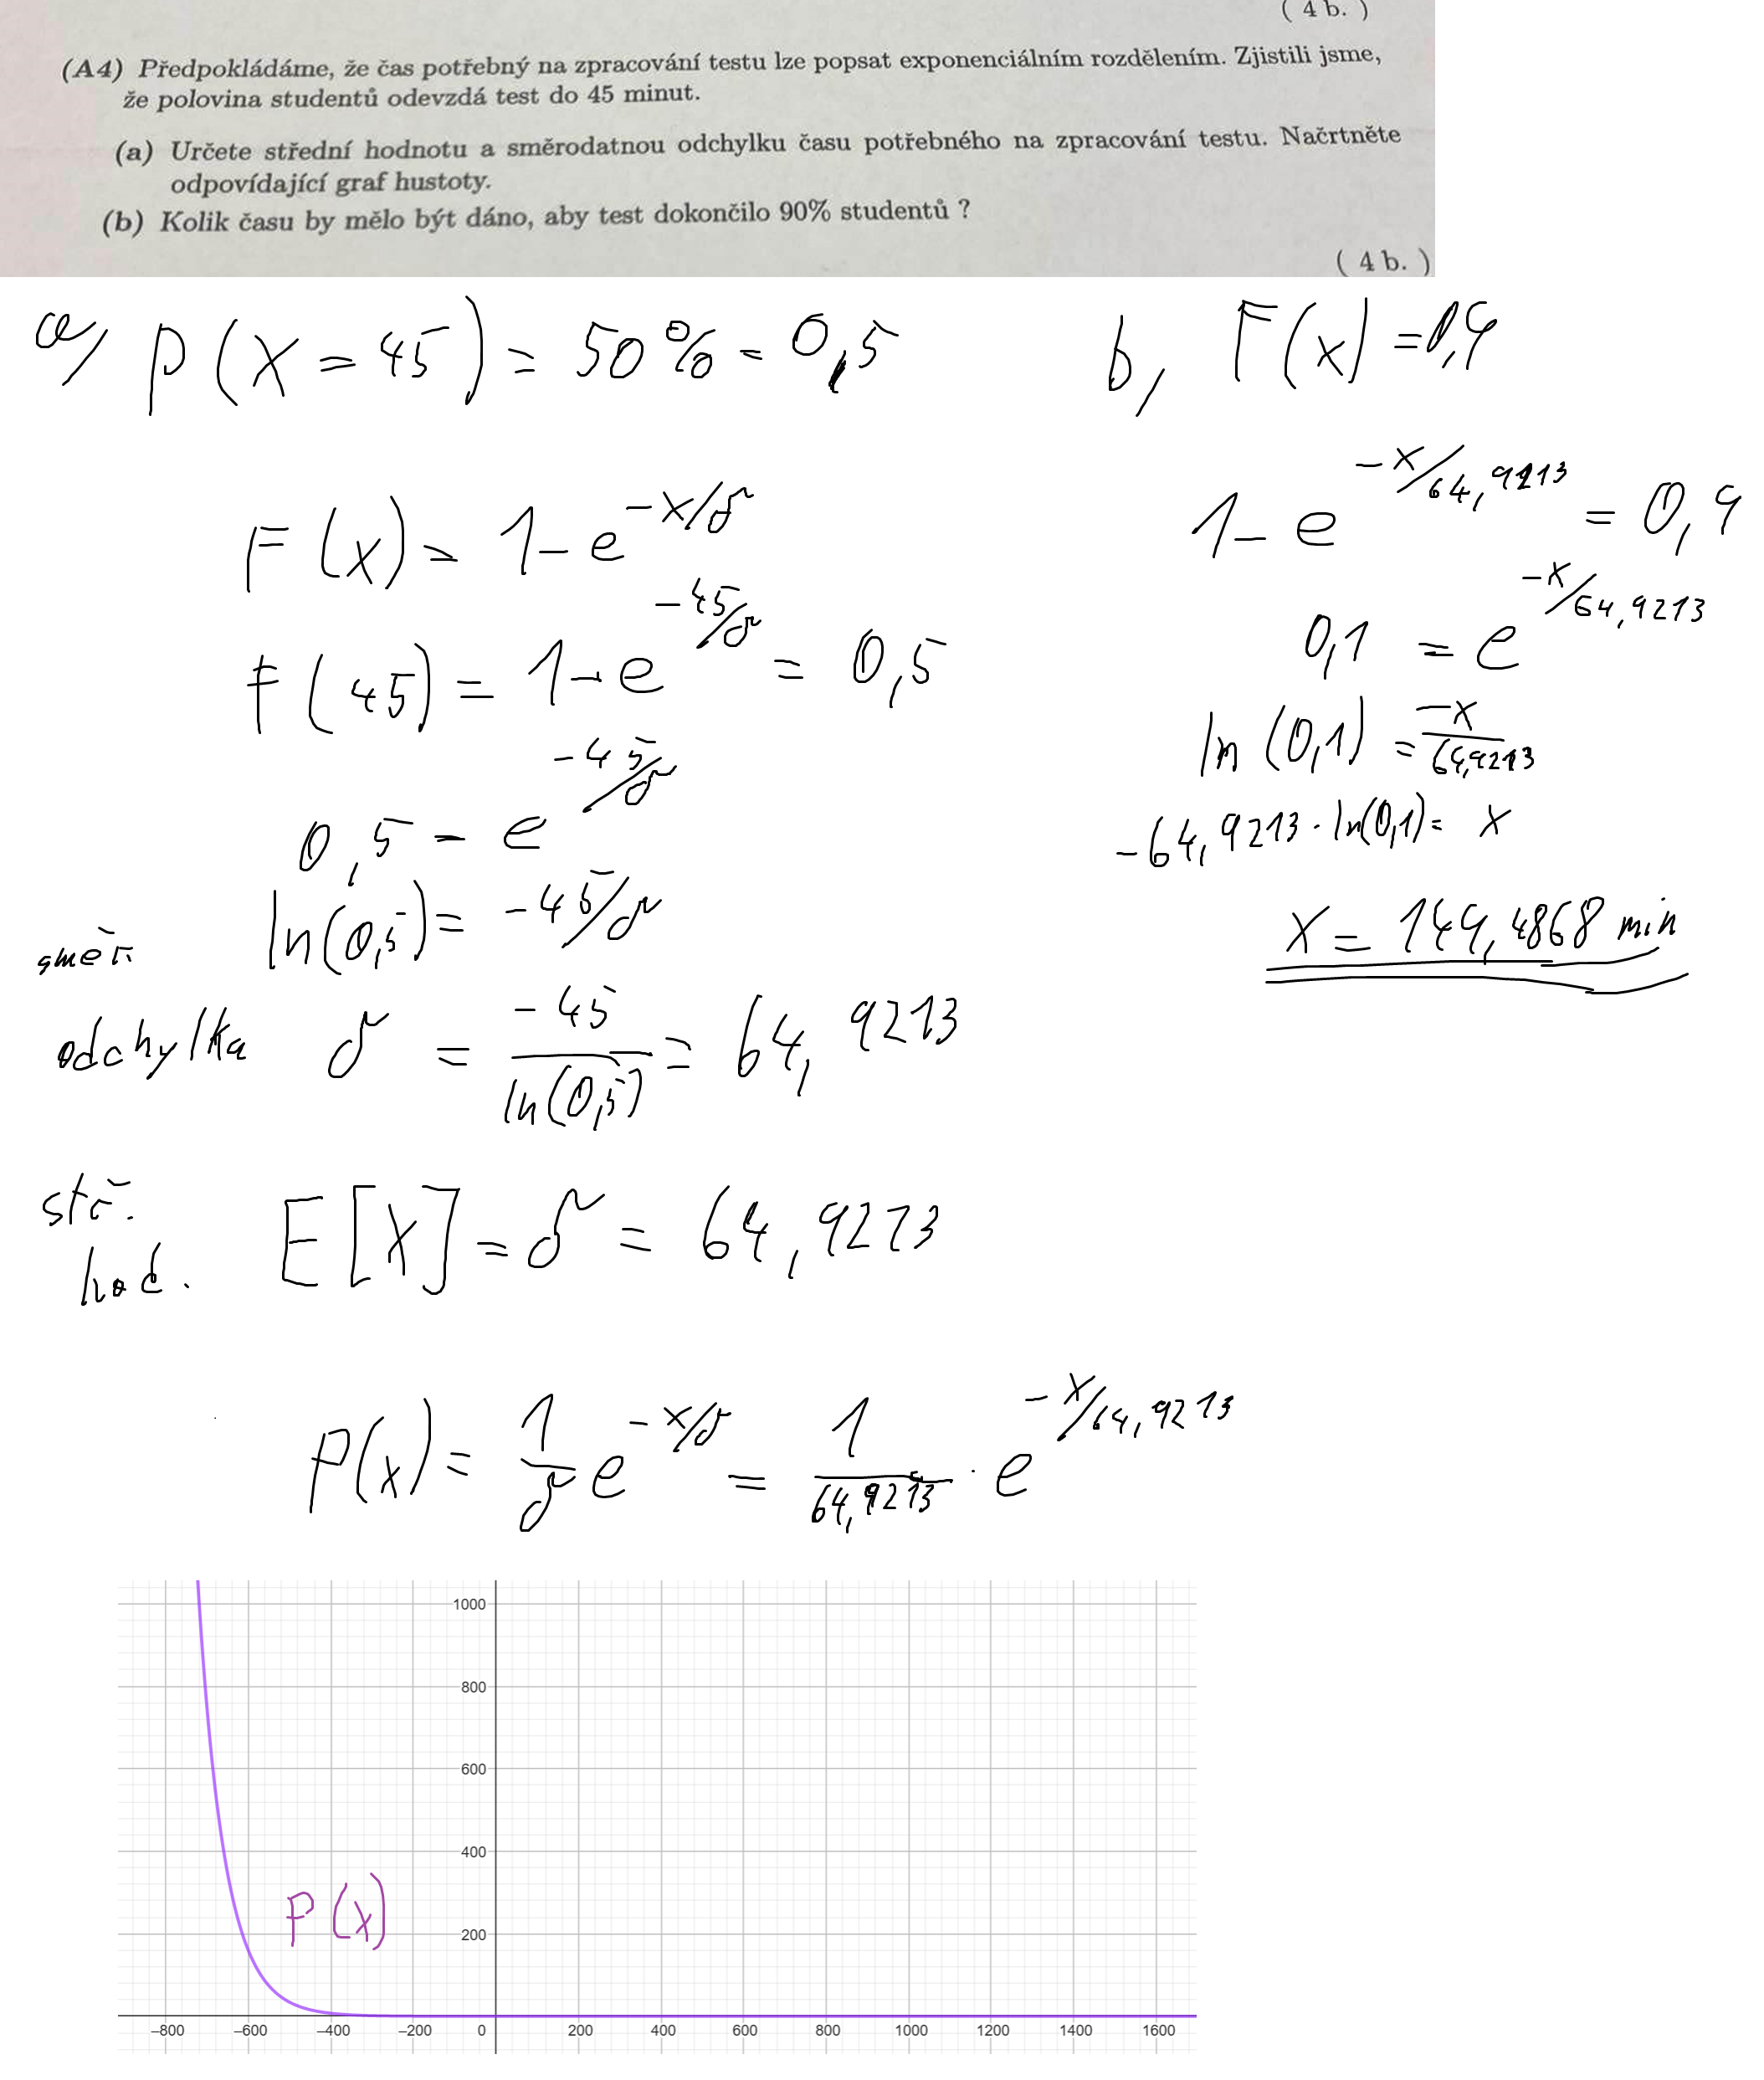 ( 4 b. )
(A4) Předpokládáme, že čas potřebný na zpracování testu lze popsat exponenciálním rozdělením. Zjistili jsme,
že polovina studentů odevzdá test do 45 minut.
(a) Určete střední hodnotu a směrodatnou odchylku času potřebného na zpracování testu. Načrtněte
odpovídající graf hustoty.
(b) Kolik času by mělo být dáno, aby test dokončilo 90% studentů ?
( 4 b. )
a, P(X = 45) = 50% = 0,5
F(x) = 1 - e^{-x/δ}
F(45) = 1 - e^{-45/δ} = 0,5
0,5 = e^{-45/δ}
ln(0,5) = -45/δ
směr.
odchylka δ = \frac{-45}{ln(0,5)} = 64,9213
stř.
hod. E[X] = δ = 64,9213
P(x) = \frac{1}{δ} e^{-x/δ} = \frac{1}{64,9213} · e^{-x/64,9213}
b, F(x) = 0,9
1 - e^{-x/64,9213} = 0,9
0,1 = e^{-x/64,9213}
ln(0,1) = \frac{-x}{64,9213}
-64,9213 · ln(0,1) = x
x = 149,4868 min
1000
800
600
400
P(x)
200
-800 -600 -400 -200 0 200 400 600 800 1000 1200 1400 1600